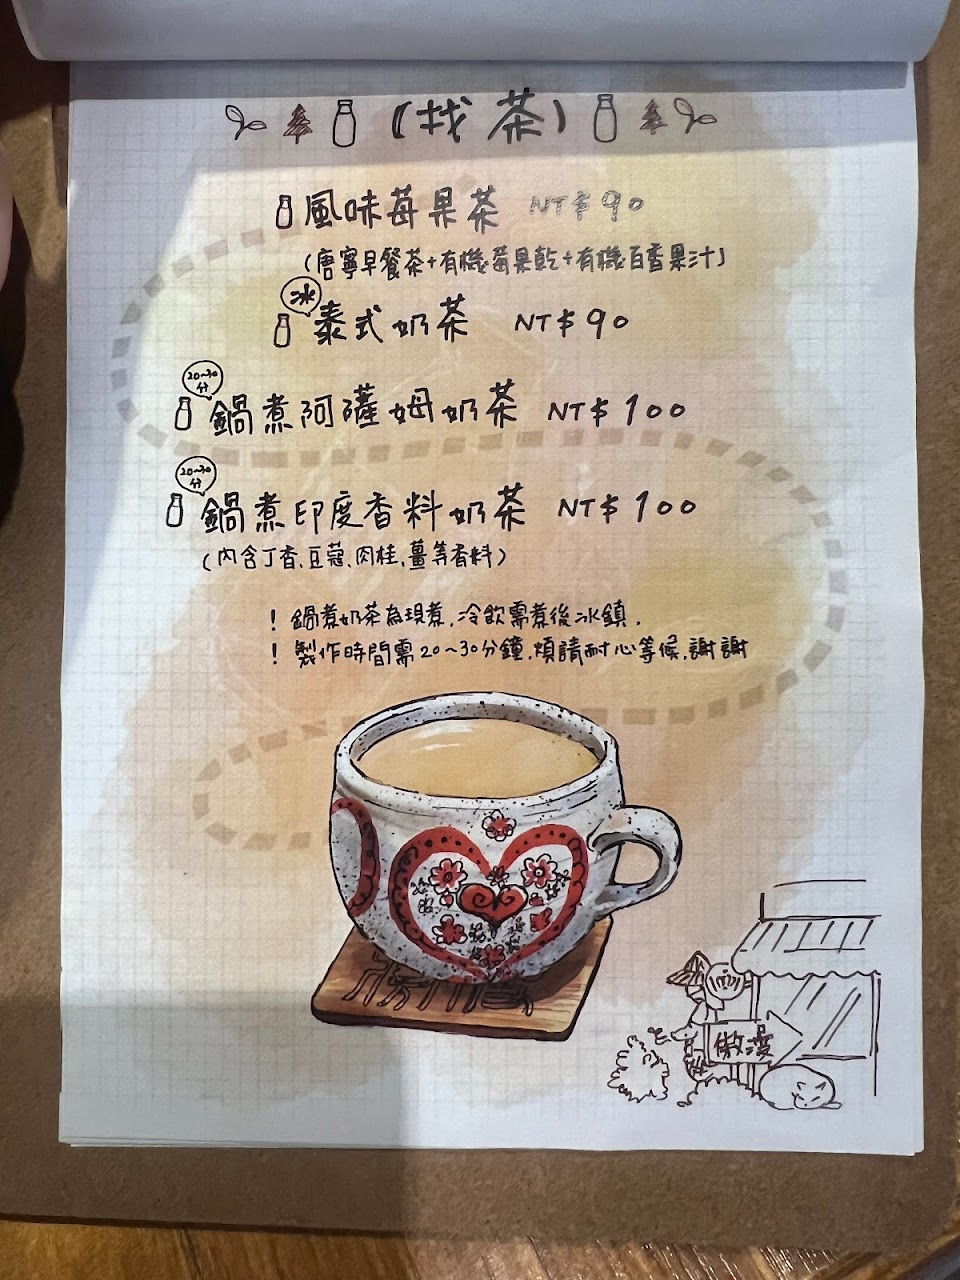 (找茶)
風味莓果茶 NT$90
(唐寧早餐茶+有機莓果乾+有機百香果汁)
冰
泰式奶茶 NT$90
20~30
分
鍋煮阿薩姆奶茶 NT$100
20~30
分
鍋煮印度香料奶茶 NT$100
(內含丁香、豆蔻、肉桂,薑等香料)
! 鍋煮奶茶為現煮,冷飲需煮後冰鎮,
! 製作時間需20~30分鐘,煩請耐心等候,謝謝
傲漫